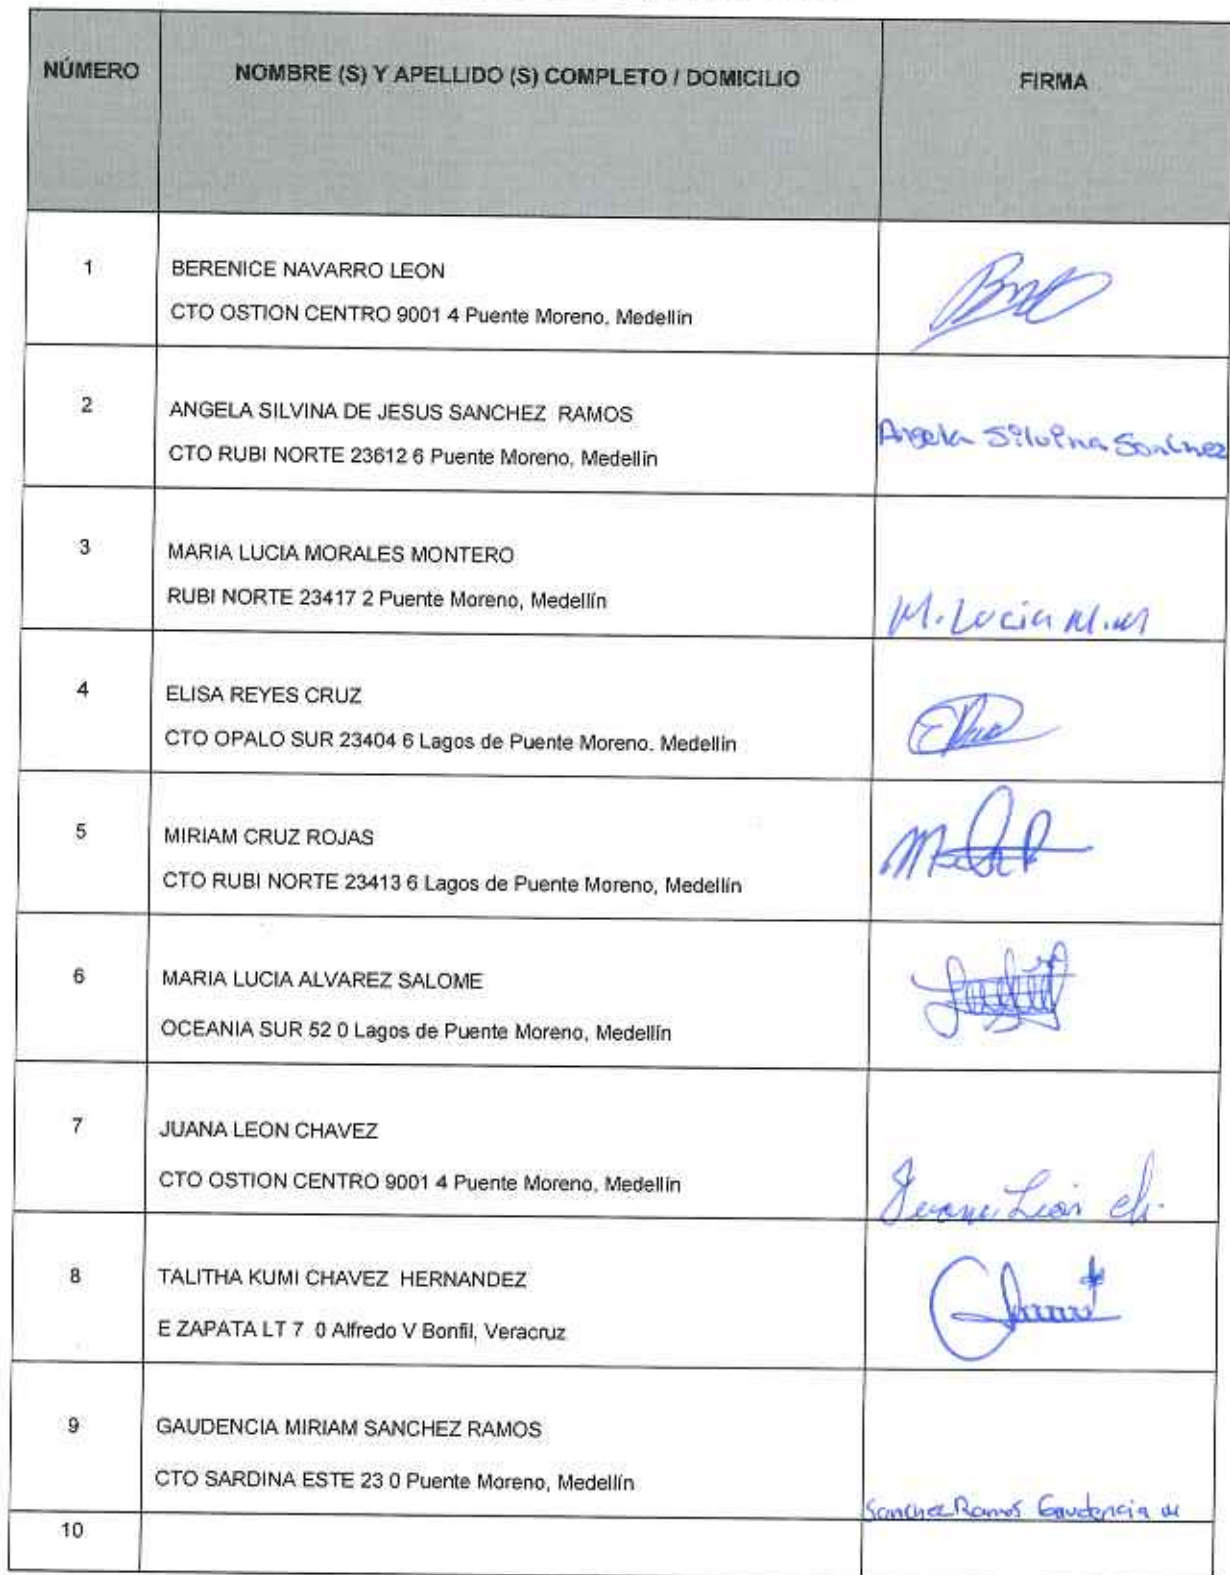 NÚMERO
NOMBRE (S) Y APELLIDO (S) COMPLETO / DOMICILIO
FIRMA
1
BERENICE NAVARRO LEON
CTO OSTION CENTRO 9001 4 Puente Moreno, Medellín
2
ANGELA SILVINA DE JESUS SANCHEZ RAMOS
CTO RUBI NORTE 23612 6 Puente Moreno, Medellín
Angela Silvina Sanchez
3
MARIA LUCIA MORALES MONTERO
RUBI NORTE 23417 2 Puente Moreno, Medellín
M. Lucia M.M
4
ELISA REYES CRUZ
CTO OPALO SUR 23404 6 Lagos de Puente Moreno. Medellín
5
MIRIAM CRUZ ROJAS
CTO RUBI NORTE 23413 6 Lagos de Puente Moreno, Medellín
6
MARIA LUCIA ALVAREZ SALOME
OCEANIA SUR 52 0 Lagos de Puente Moreno, Medellín
7
JUANA LEON CHAVEZ
CTO OSTION CENTRO 9001 4 Puente Moreno, Medellín
Juana León ch.
8
TALITHA KUMI CHAVEZ HERNANDEZ
E ZAPATA LT 7 0 Alfredo V Bonfil, Veracruz
9
GAUDENCIA MIRIAM SANCHEZ RAMOS
CTO SARDINA ESTE 23 0 Puente Moreno, Medellín
Sanchez Ramos Gaudencia M
10